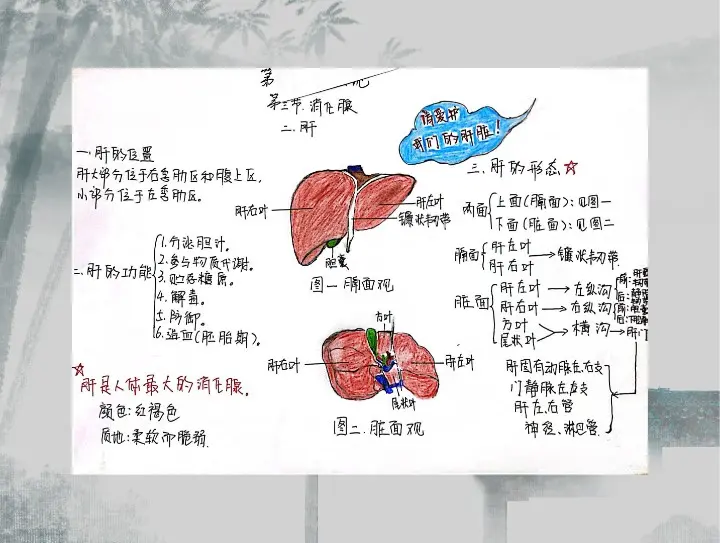 第
观
第三节.消化腺
二.肝
请爱护
我们的肝脏!
一.肝的位置
肝大部分位于右季肋区和腹上区,
小部分位于左季肋区.
二.肝的功能
1.分泌胆汁.
2.参与物质代谢.
3.贮存糖原.
4.解毒.
5.防御.
6.造血(胚胎期).
☆
肝是人体最大的消化腺.
颜色:红褐色
质地:柔软而脆弱.
肝右叶
肝左叶
镰状韧带
胆囊
图一.膈面观
方叶
肝右叶
肝左叶
尾状叶
图二.脏面观
三.肝的形态☆
两面
上面(膈面):见图一
下面(脏面):见图二
膈面
肝左叶
肝右叶
→镰状韧带.
脏面
肝左叶→左纵沟
肝右叶→右纵沟
方叶
尾状叶
→横沟→肝门
肝固有动脉左右支
门静脉左右支
肝左右管
神经、淋巴管.